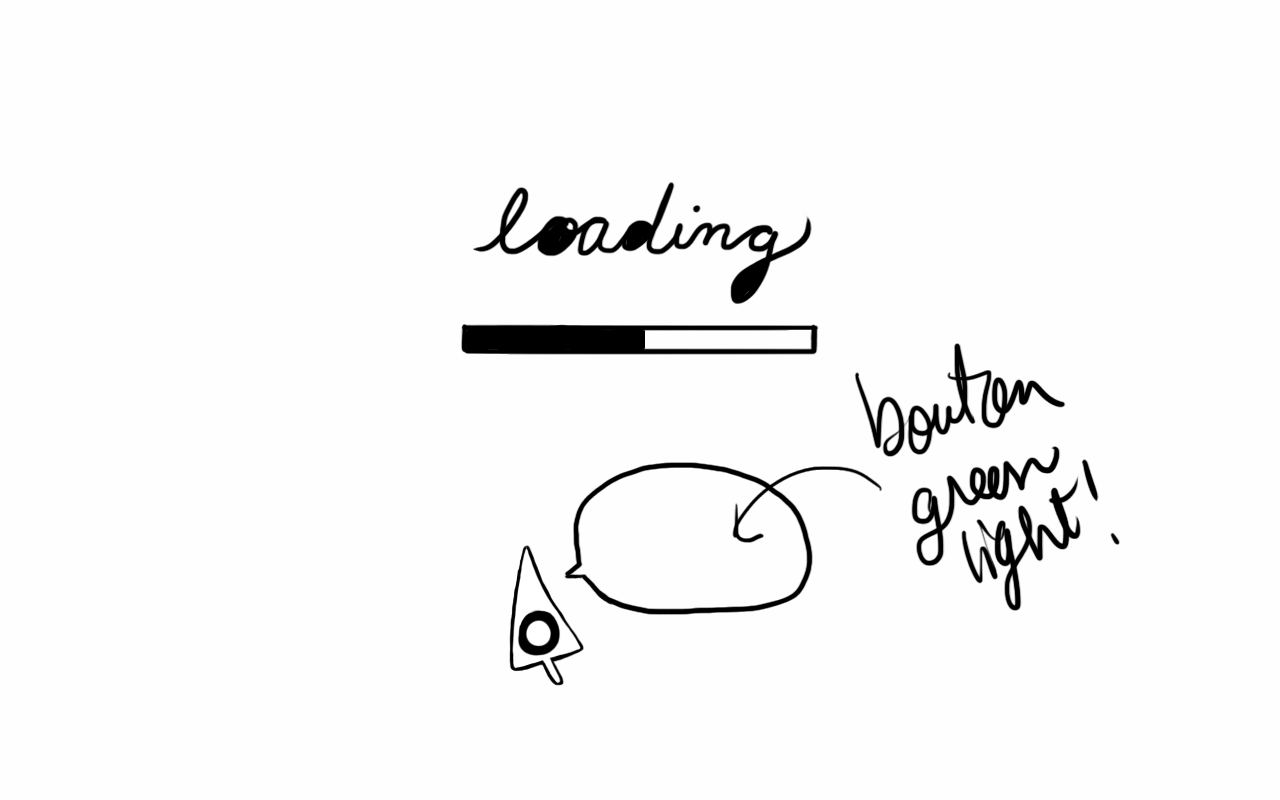 loading
bouton
green
light!